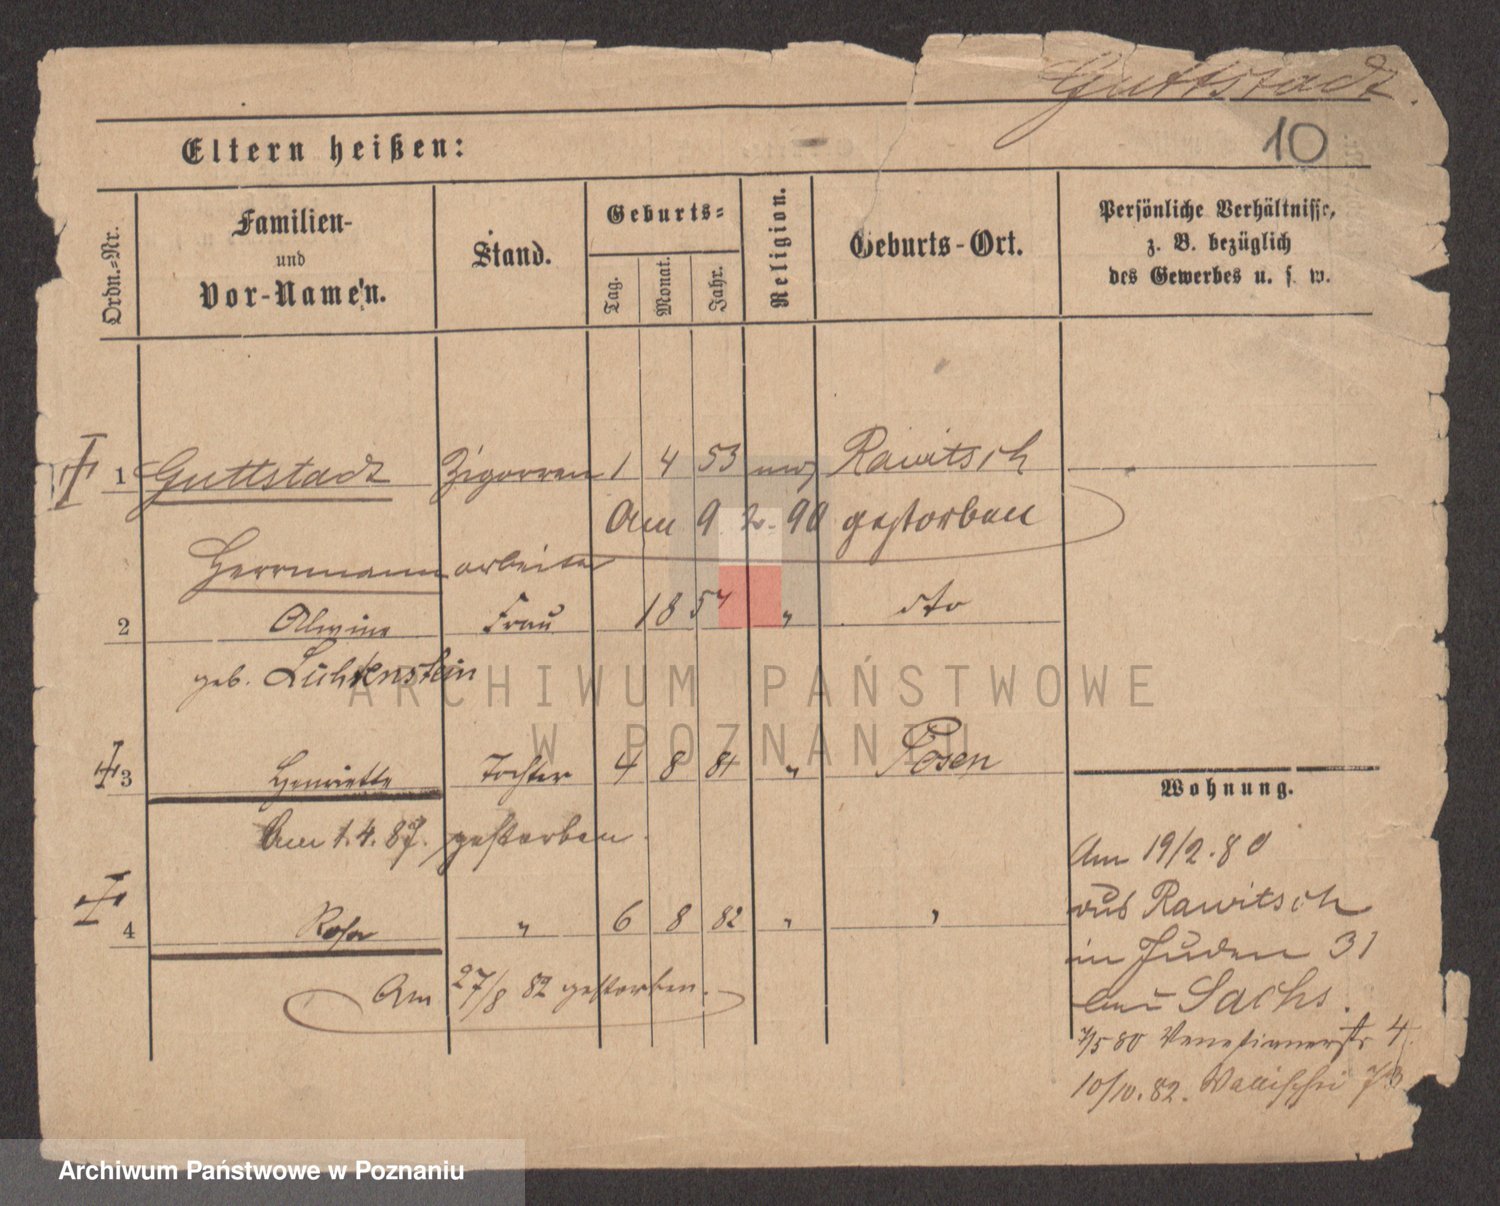 Guttstadt.
10
Eltern heißen:
Ordn.-Nr.
Familien-
und
Vor-Namen.
Stand.
Geburts-
Tag.
Monat.
Jahr.
Religion.
Geburts-Ort.
Persönliche Verhältnisse,
z. B. bezüglich
des Gewerbes u. s. w.
1 Guttstadt Zigarren 1 4 53 mos Rawitsch
Am 9. 2. 90 gestorben
Herrmann arbeiter
2 Alwine Frau 18 57 " dto
geb. Lichtenstein
3 Henriette Tochter 4 8 81 " Posen
Am 1. 4. 87. gestorben.
4 Rosa " 6 8 82 " "
Am 27/8 82 gestorben.
Wohnung.
Am 19/2. 80
aus Rawitsch
in Juden 31
Sachs.
7/5 80 Venetianerstr 4.
10/10. 82. Wallischei 73
ARCHIWUM PAŃSTWOWE
W POZNANIU
Archiwum Państwowe w Poznaniu